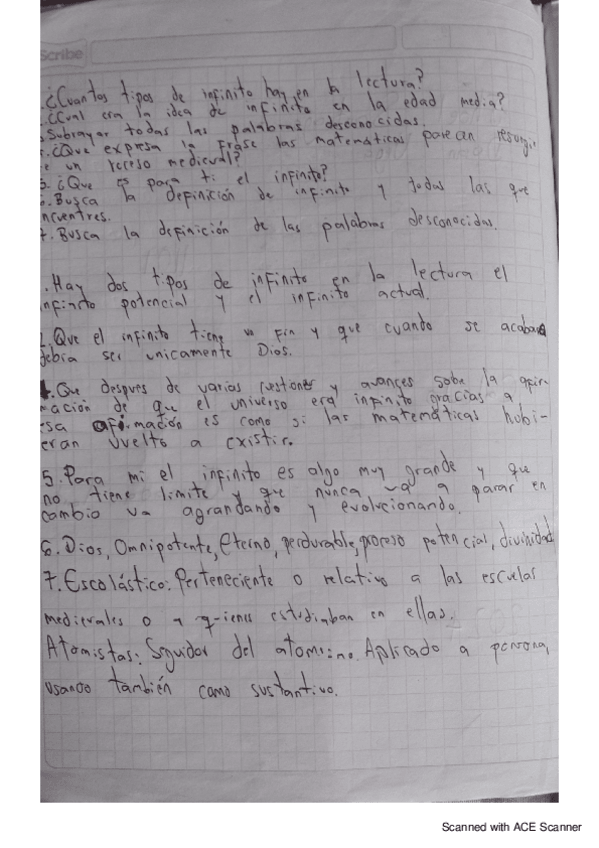 Scribe
.¿Cuantos tipos de infinito hay en la lectura?
.¿Cual era la idea de infinito en la edad media?
.Subrayar todas las palabras desconocidas.
.¿Que expresa la frase las matematicas parecen resurgir
e un receso medieval?
5.¿Que es para ti el infinito?
6.Busca la definición de infinito y todas las que
ncuentres.
7.Busca la definición de las palabras desconocidas.
.Hay dos tipos de infinito en la lectura el
nfinito potencial y el infinito actual.
2.Que el infinito tiene un fin y que cuando se acabara
debia ser unicamente Dios.
4.Que despues de varias y avances sobre la afir-
mación de que el universo era infinito gracias a
esa afirmación es como si las matematicas hubi-
eran vuelto a existir.
5.Para mi el infinito es algo muy grande y que
no tiene limite y que nunca va a parar en
cambio va agrandando y evolucionando.
6.Dios, Omnipotente, eterno, perdurable, proceso potencial, divinidad
7.Escolástico: Perteneciente o relativo a las escuelas
medievales o a quienes estudiaban en ellas.
Atomistas: Seguidor del atomismo. Aplicado a persona,
usando también como sustantivo.
Scanned with ACE Scanner